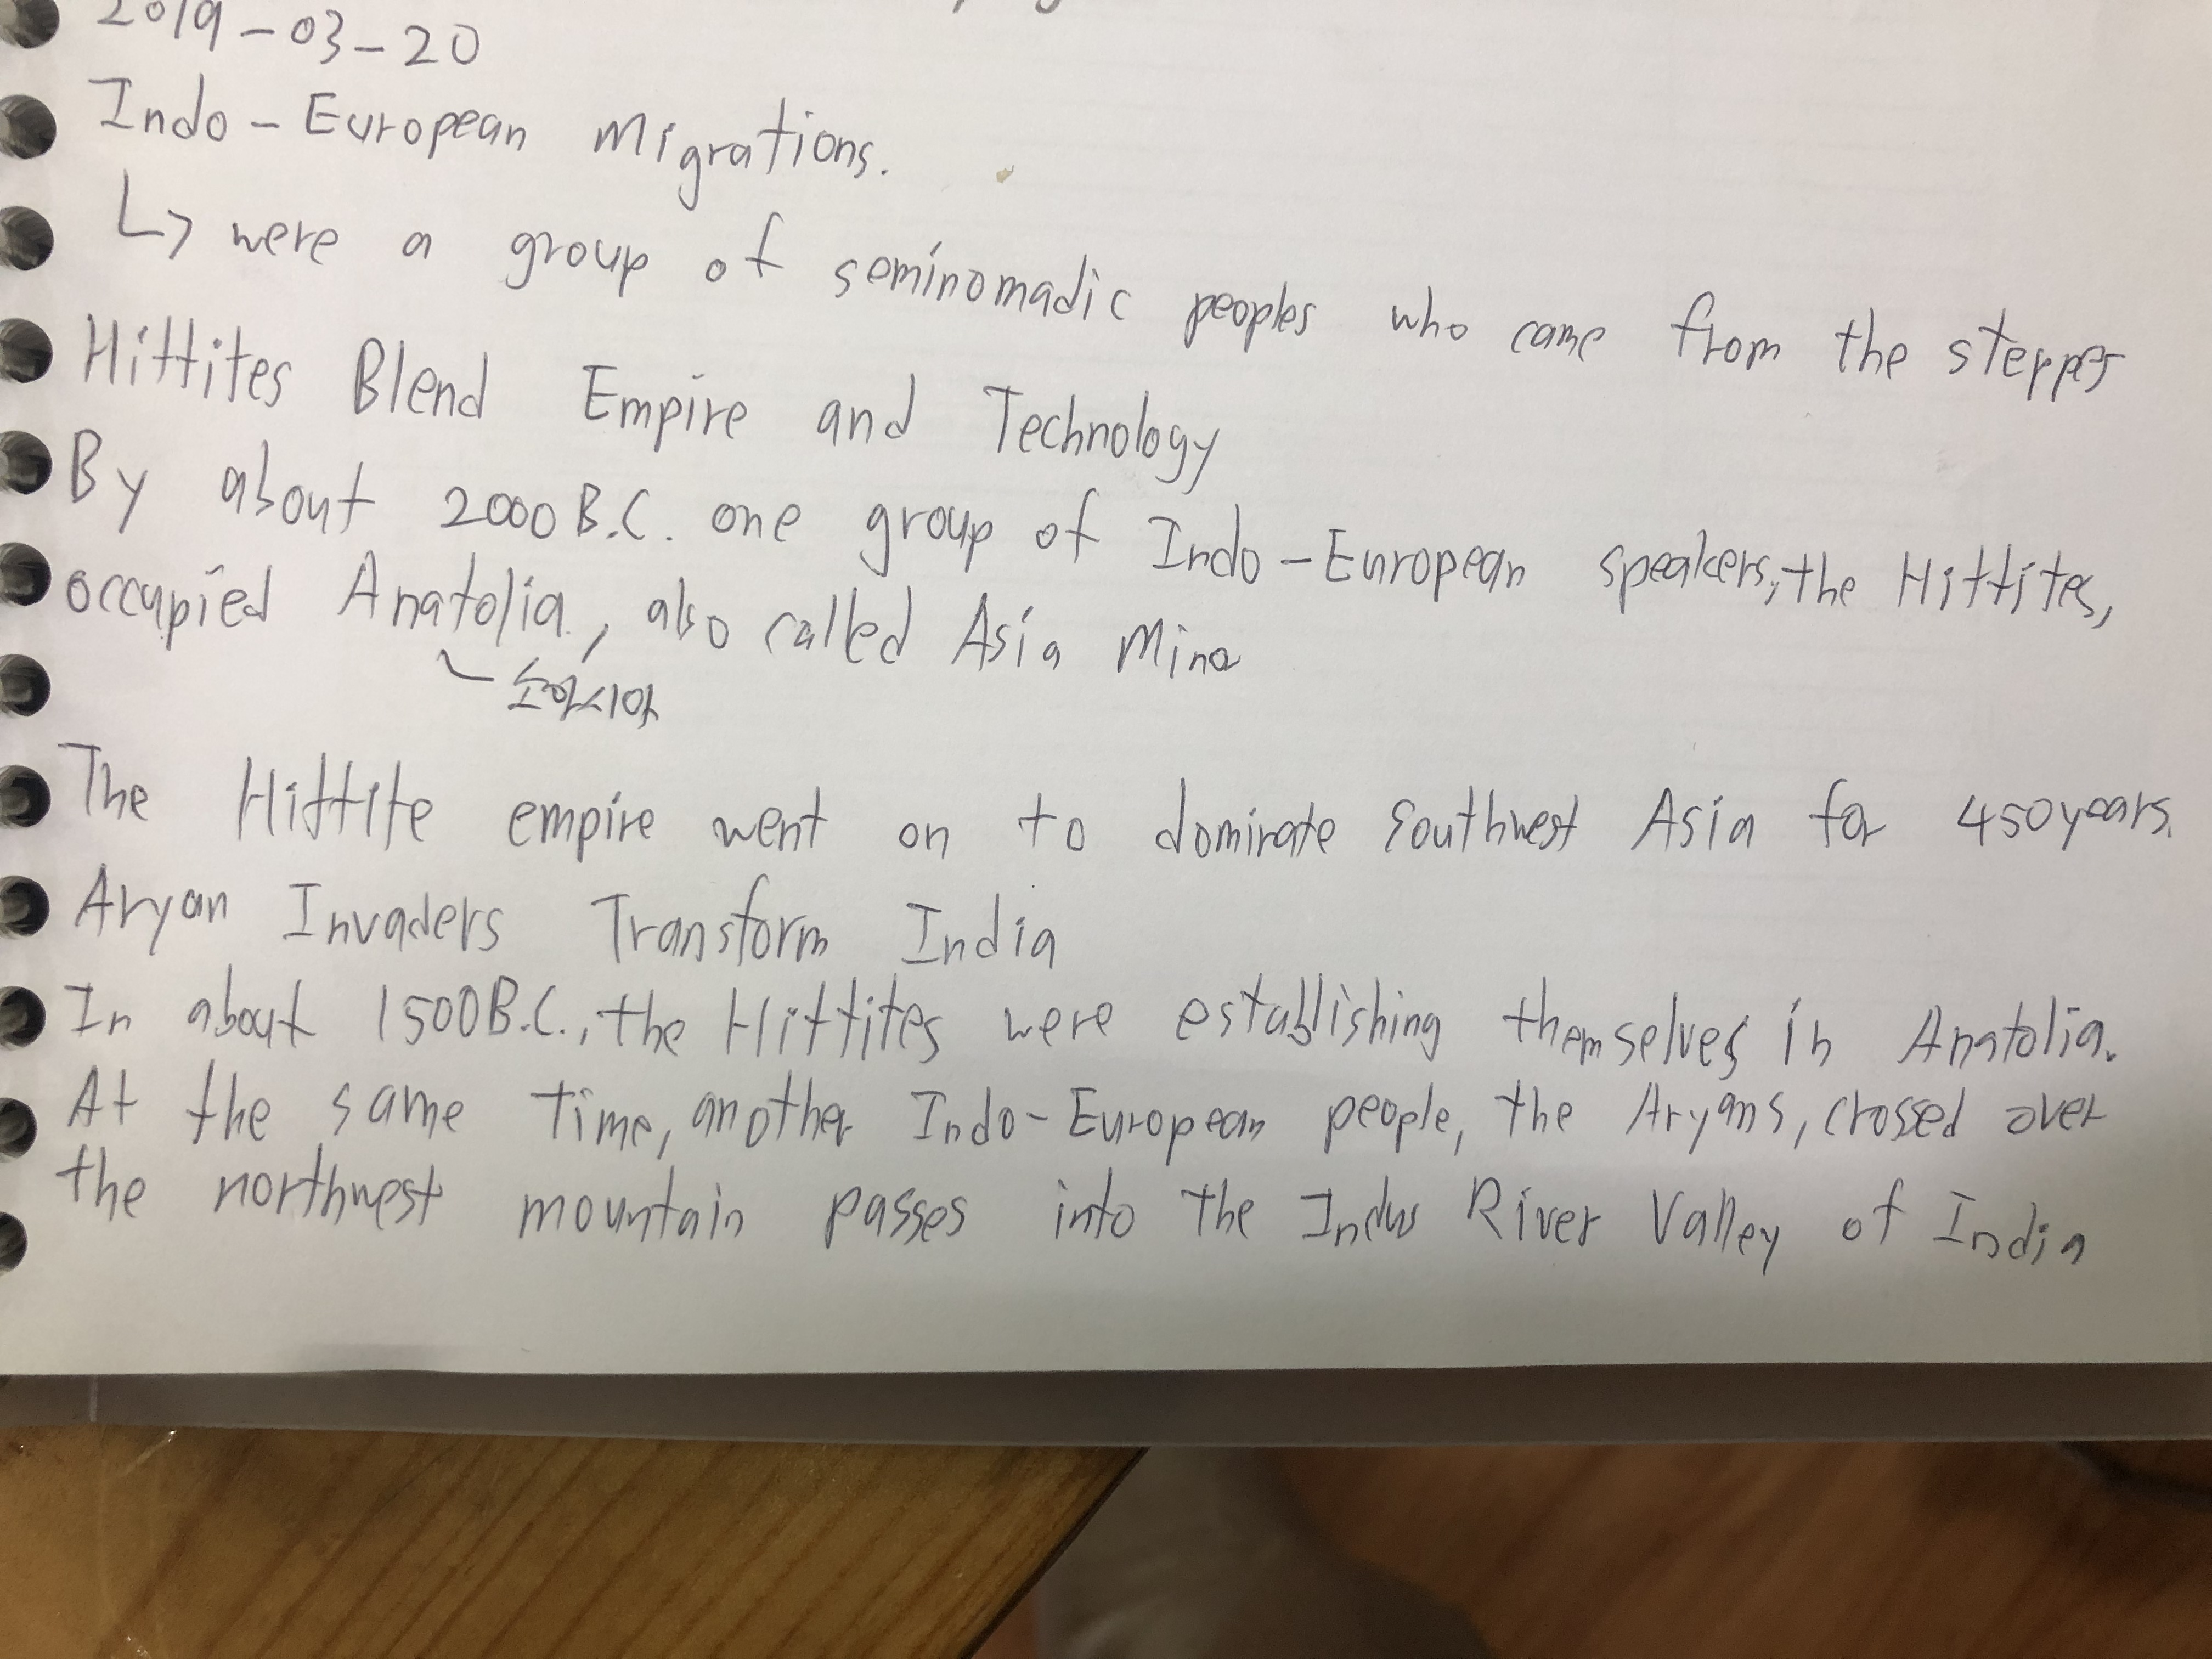 2019-03-20
Indo-European Migrations.
↳ were a group of seminomadic peoples who came from the steppes
Hittites Blend Empire and Technology
By about 2000 B.C. one group of Indo-European speakers, the Hittites,
occupied Anatolia, also called Asia Minor
소아시아
The Hittite empire went on to dominate Southwest Asia for 450years.
Aryan Invaders Transform India
In about 1500B.C., the Hittites were establishing themselves in Anatolia.
At the same time, another Indo-European people, the Aryans, crossed over
the northwest mountain passes into the Indus River Valley of India